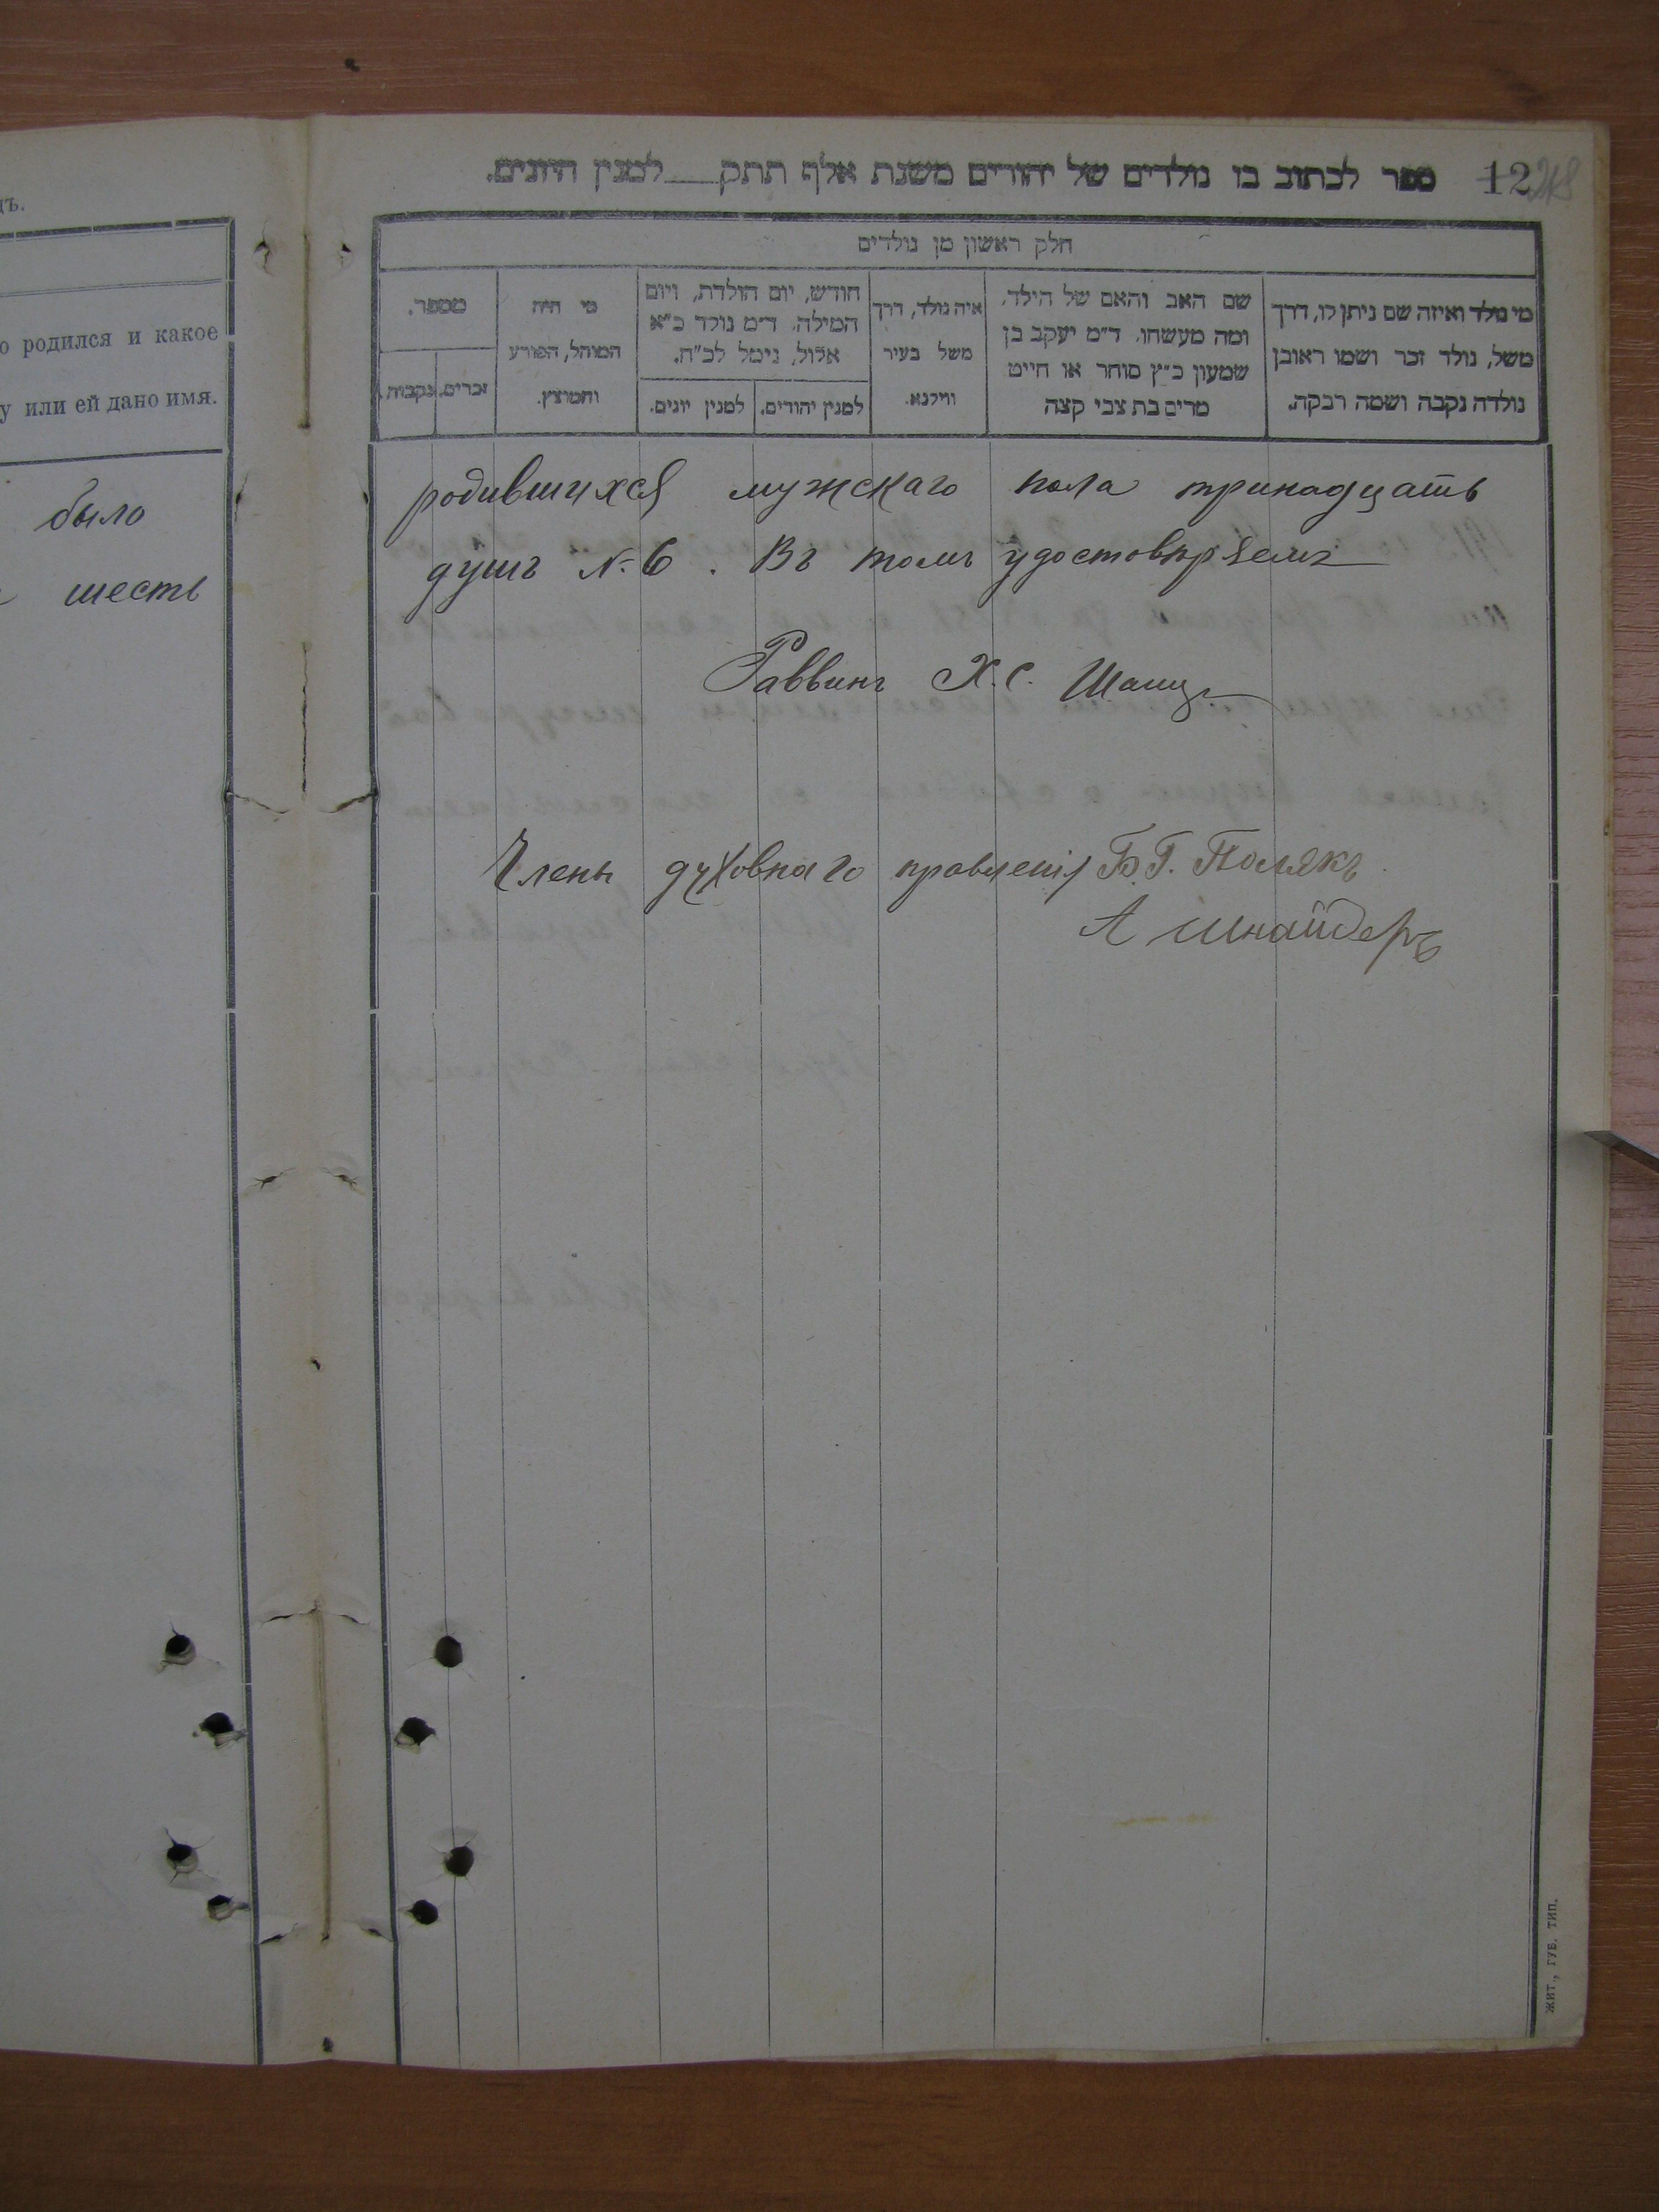 дъ.
о родился и какое
у или ей дано имя.
было
шесть
ספר לכתוב בו נולדים של יהודים משנת אלף תתק___למנין היונים.
12
חלק ראשון מן נולדים
מי נולד ואיזה שם ניתן לו, דרך
משל, נולד זכר ושמו ראובן
נולדה נקבה ושמה רבקה.
שם האב והאם של הילד,
ומה מעשהו. ד״מ יעקב בן
שמעון כ״ץ סוחר או חייט
מרים בת צבי קצה
איה נולד, דרך
משל בעיר
ווילנא.
חודש, יום הולדת, ויום
המילה. ד״מ נולד כ״א
אלול, נימל לכ״ח.
למנין יהודים.
למנין יונים.
מי היה
המוהל, הפורע
והמוצץ.
מספר.
זכרים.
נקבות.
родившихся мужскаго пола тринадцать
душъ № 6. Въ томъ удостовѣряемъ
Раввинъ Х.С.
Члены духовнаго правленія Б.Г. Полякъ
А Шнайдеръ
ЖИТ., ГУБ. ТИП.